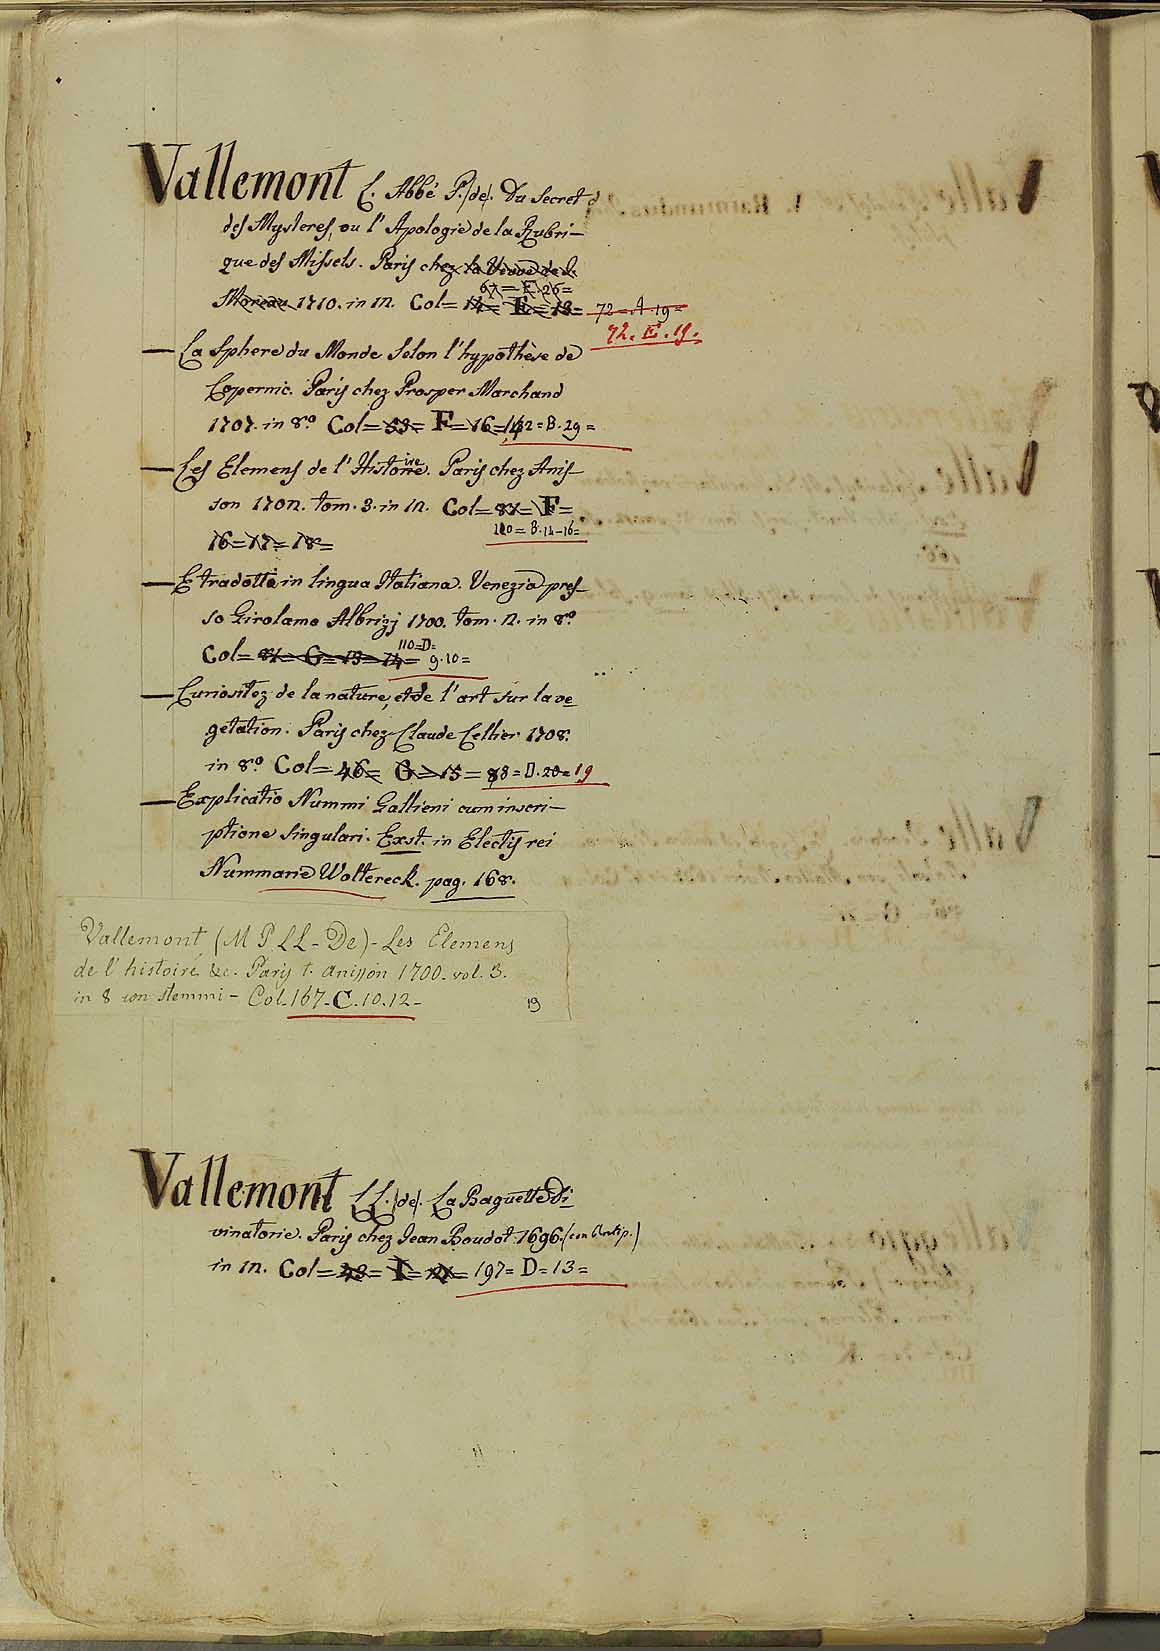 Vallemont L. Abbé P. (de). Du Secret d
des Mysteres, ou l'Apologie de la Rubri-
que des Missels. Paris chez la Veuve de D.
67 = E. 26 =
Moreau 1710. in 12. Col = 14 = E = 18 = 72 = A. 19 =
72. E. 19.
— La Sphere du Monde Selon l'hypothèse de
Copernic. Paris chez Prosper Marchand
1707. in 8.º Col = 53 = F = 16 = 142 = B. 29 =
— Les Elemens de l'Histoire. Paris chez Anis-
son 1702. tom. 3. in 12. Col = 81 = F =
110 = B. 14 - 16 =
16 = 17 = 18 =
— E tradotta in lingua Italiana. Venezia pres-
so Girolamo Albrizj 1700. tom. 2. in 8.º
110 = D =
Col = 81 = G = 13 = 14 = 9. 10 =
— Curiositez de la nature, et de l'art sur la ve
getation. Paris chez Claude Cellier 1708.
in 8.º Col = 46 = G = 15 = 88 = D. 20 = 19
— Explicatio Nummi Gallieni cum inscri-
ptione singulari. Exst. in Electis rei
Nummariæ Woltereck. pag. 168.
Vallemont (M P. LL - De) - Les Elemens
de l'histoire &c. Paris t. Anisson 1700. vol. 3.
in 8 con stemmi - Col. 167 - C. 10. 12 - 19
Vallemont LL. (de). La Baguette Di
vinatorie. Paris chez Jean Boudot 1696. (con Antip.)
in 12. Col = 43 = I = 21 = 197 = D = 13 =